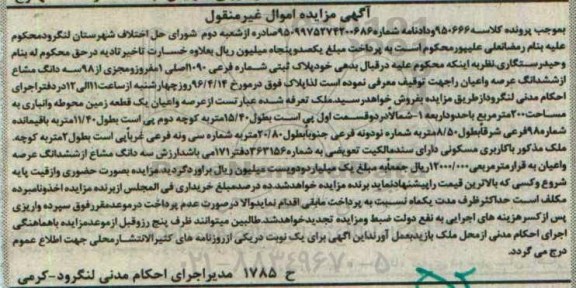 آگهی مزایده اموال غیرمنقول
بموجب پرونده کلاسه ۹۵۰۶۶۶ ودادنامه شماره ۹۵۰۹۹۷۵۲۷۴۲۰۰۶۸۶ صادره ازشعبه دوم شورای حل اختلاف شهرستان لنگرودمحکوم
علیه بنام رمضانعلی علیپورمحکوم است به پرداخت مبلغ یکصدوپنجاه میلیون ریال بعلاوه خسارت تاخیر تادیه درحق محکوم له بنام
وحیدرستگاری.نظربه اینکه محکوم علیه درقبال بدهی خودپلاک ثبتی شماره فرعی ۱۰۹۰اصلی ۱مفروزومجزی از۹۸سه دانگ مشاع
ازششدانگ عرصه واعیان راجهت توقیف معرفی نموده است لذاپلاک فوق درمورخ ۹۶/۴/۱۴ روزچهارشنبه ازساعت۱۱الی۱۲دردفتراجرای
احکام مدنی لنگرودازطریق مزایده بفروش خواهدرسید.ملک تعرفه شده عبارتست ازعرصه واعیان یک قطعه زمین محوطه وانباری به
مساحت۲۰۰مترمربع باحدوداربعه ۱-شمالاً:دردوقسمت اول پی است بطول۱۵/۴۰متربه کوچه دوم پی است بطول۱۱/۴۰متربه باقیمانده
شماره۹۸فرعی شرقاًبطول۸/۵۰متربه شماره نودونه فرعی جنوباًبطول۲۰/۸۰متربه شماره سی ونه فرعی غرباًپی است بطول۲متربه کوچه.
ملک مذکورباکاربری مسکونی دارای سندمالکیت تعویضی به شماره۳۶۳۱۵۶دفتر۱۷۱می باشدارزش سه دانگ مشاع ازششدانگ عرصه
واعیان به قرارمترمربعی۱۲/۰۰۰/۰۰۰ریال جمعاًبه مبلغ یک میلیاردودویست میلیون ریال برآوردگردید.مزایده بصورت حضوری وازقیت پایه
شروع وکسی که بالاترین قیمت راپیشنهادنماید برنده مزایده خواهدشد.ده درصدمبلغ خریداری فی المجلس ازبرنده مزایده اخذونامبرده
مکلف است حداکثرظرف مدت یکماه نسبت به پرداخت مابقی اقدام نمایدوالا درصورت عدم پرداخت درموعدمقررفوق سپرده واریزی
پس ازکسرهزینه های اجرایی به نفع دولت ضبط ومزایده تجدیدخواهدشد.طالبین میتوانند ظرف پنج روزقبل ازموعدمزایده باهماهنگی
اجرای احکام مدنی ازمحل ملک بازدیدبعمل آورنداین آگهی برای یک نوبت دریکی ازروزنامه های کثیرالانتشارمحلی جهت اطلاع عموم
درج می گردد.
ح ۱۷۸۵ مدیراجرای احکام مدنی لنگرود-کرمی